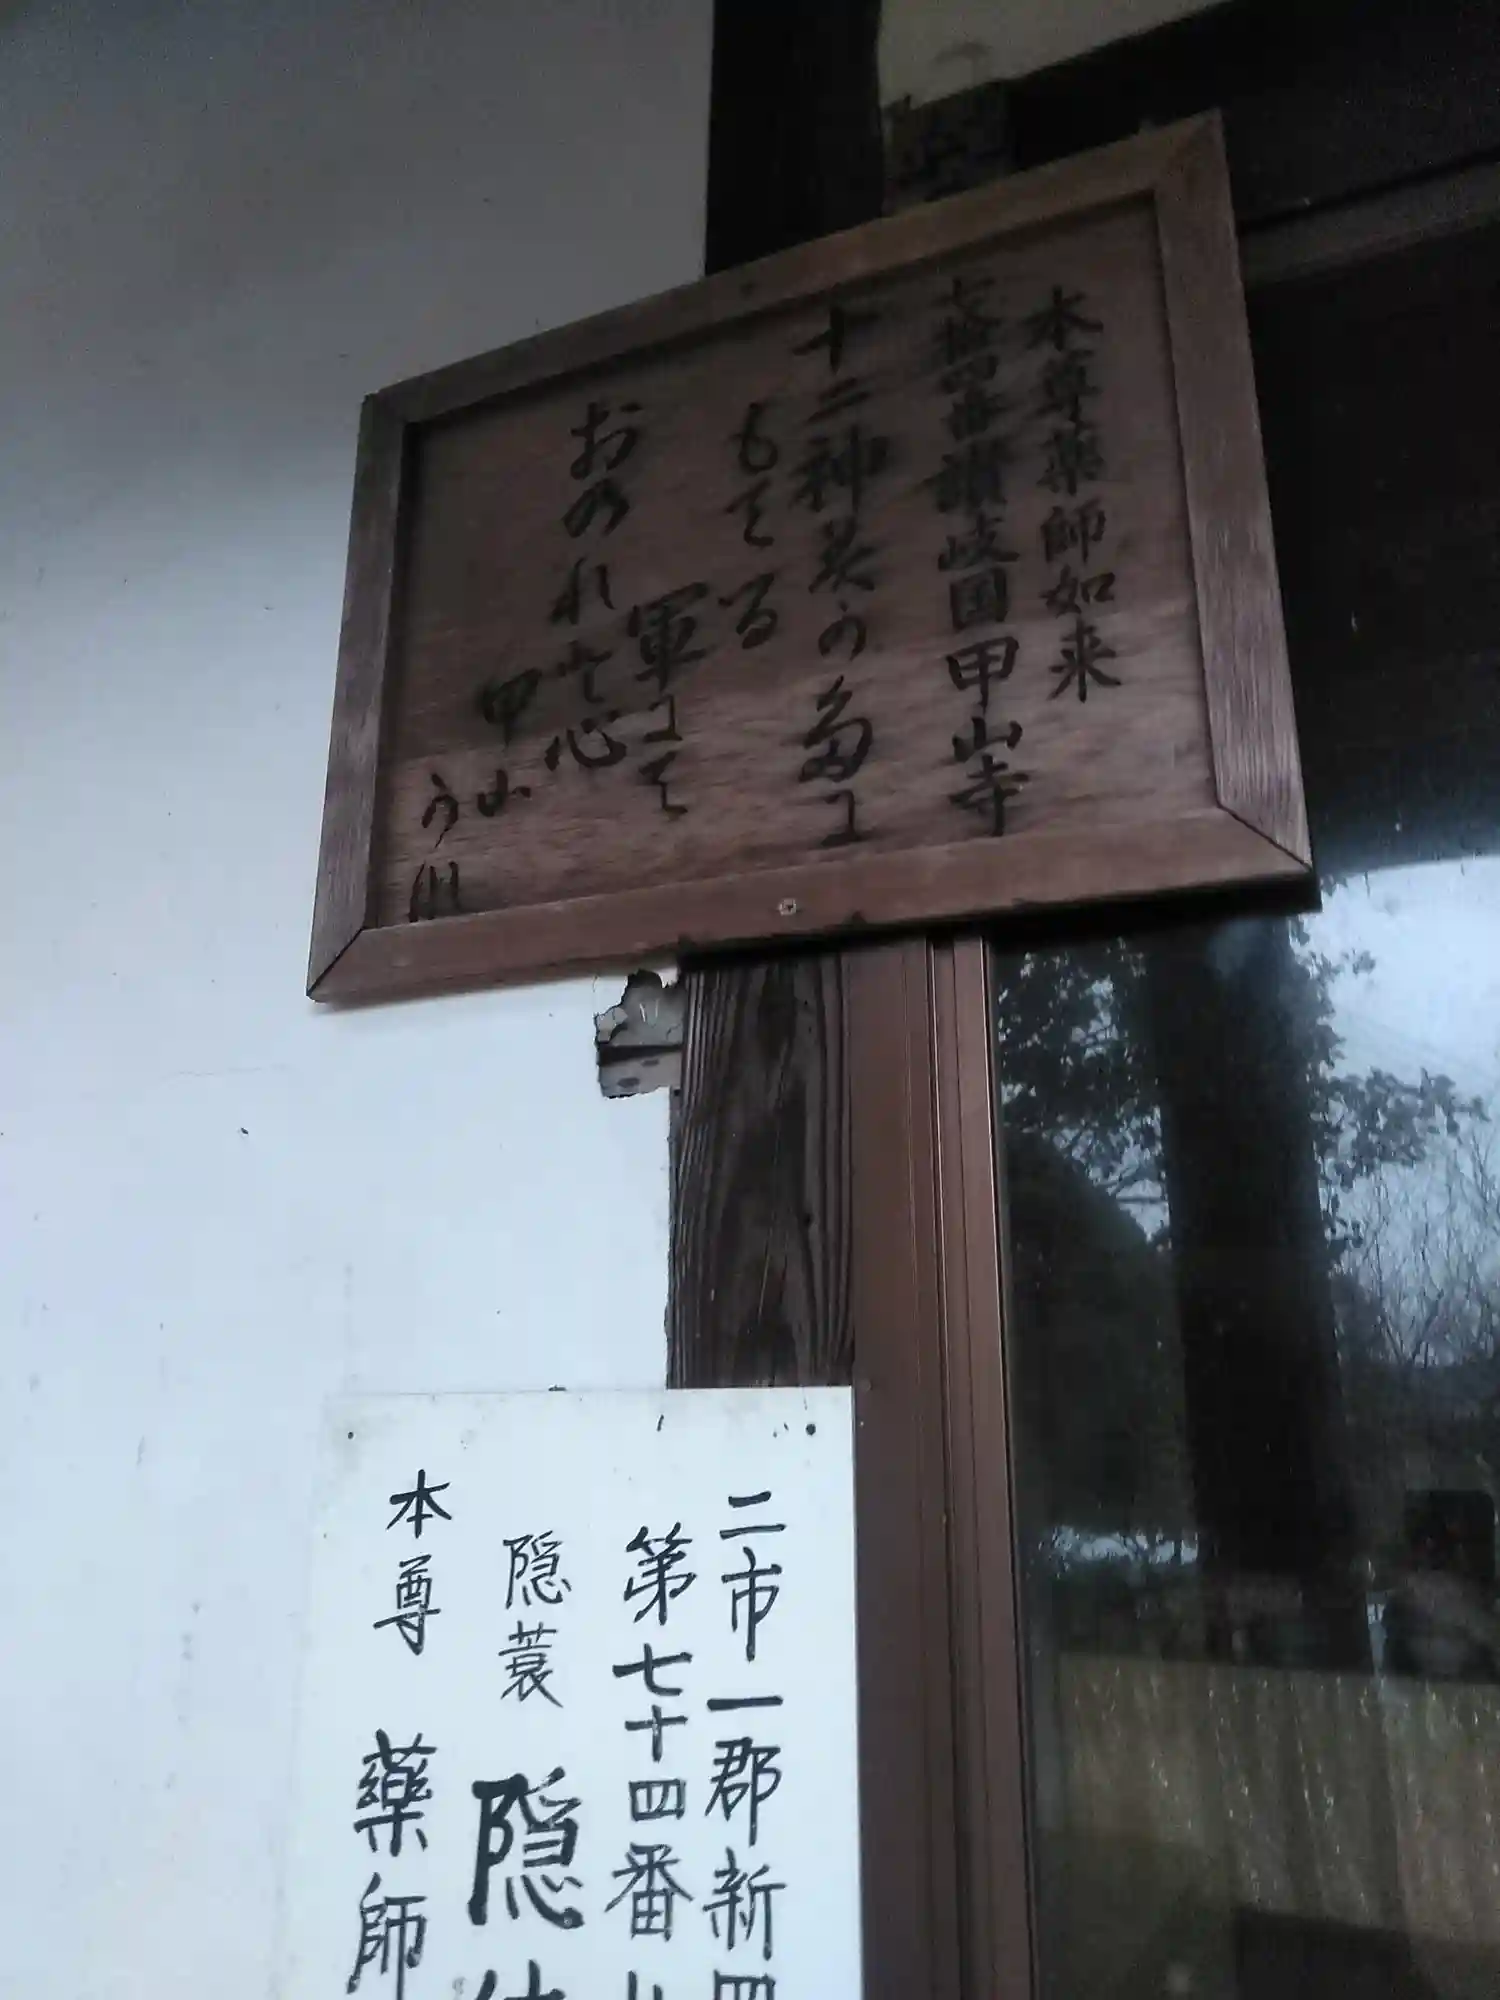 本尊薬師如来
七拾四番讃岐国甲山寺
十二神
もてる
軍にて
おのれと心
甲山
二市一郡新四
第七十四番
隠蓑 隠
本尊 薬師